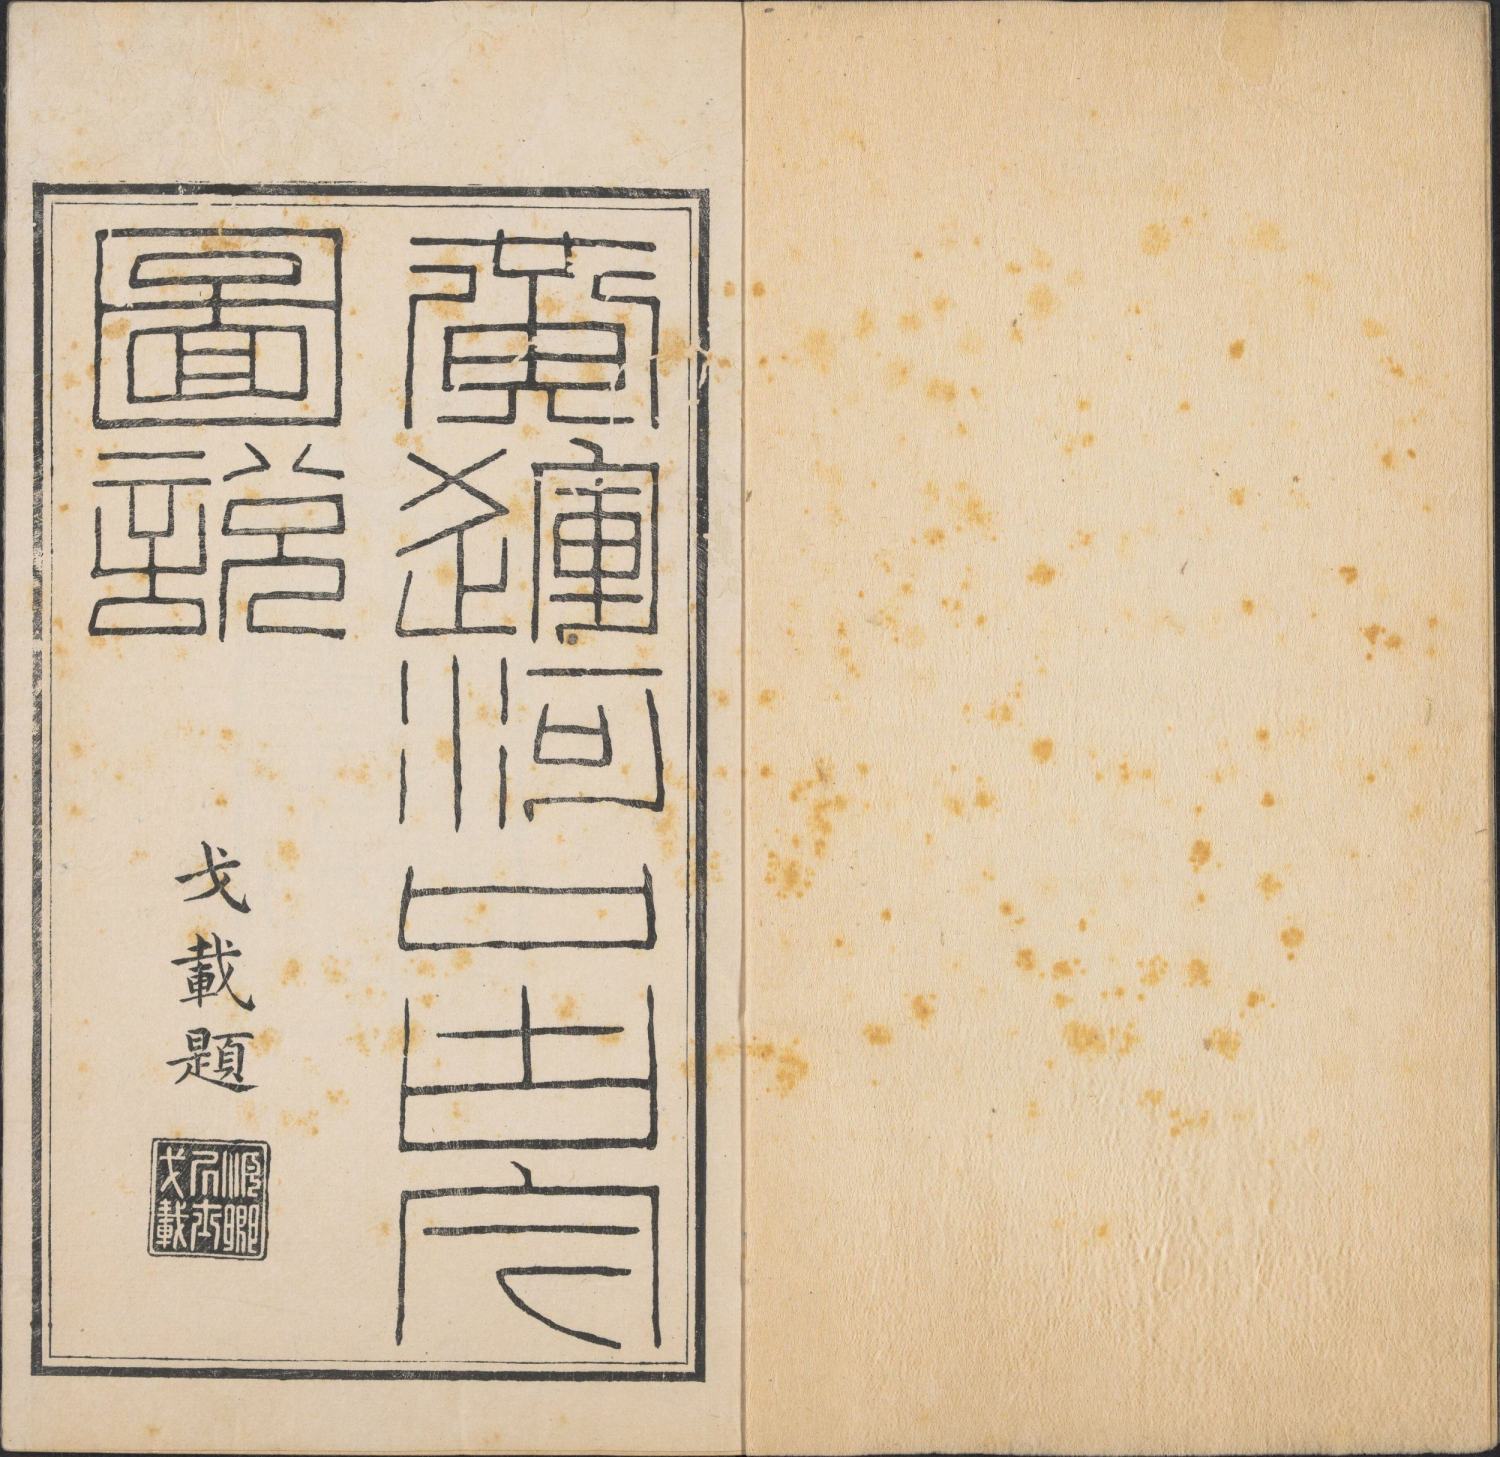 黃運河口古今
圖說
戈載題
順卿
戈載